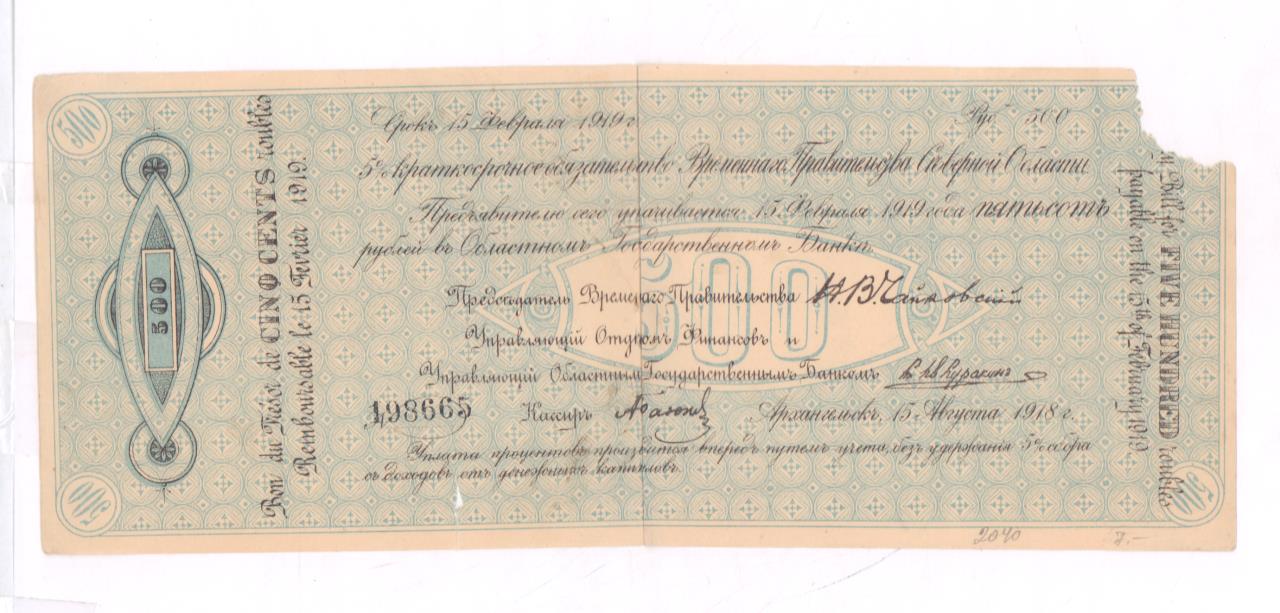 500
Срокъ 15 Февраля 1919 г.
Руб. 500
5% краткосрочное обязательство Временнаго Правительства Сѣверной Области
Предъявителю сего уплачивается 15 Февраля 1919 года пятьсотъ
рублей въ Областномъ Государственномъ Банкѣ.
500
Предсѣдатель Времен͏наго Правительства Н.В. Чайковскій
Управляющій Отдѣломъ Финансовъ и
Управляющій Областнымъ Государственнымъ Банкомъ Куракинъ
198665 Кассиръ
Архангельскъ, 15 Августа 1918 г.
Уплата процентовъ производится впередъ путемъ учета, безъ удержания 5% сбора
съ доходовъ отъ денежныхъ капиталовъ.
Bon du Trésor de CINQ CENTS roubles
Remboursable le 15 Fevrier 1919.
500
Bill for FIVE HUNDRED roubles
payable on the 15th of February 1919.
500
500
2040